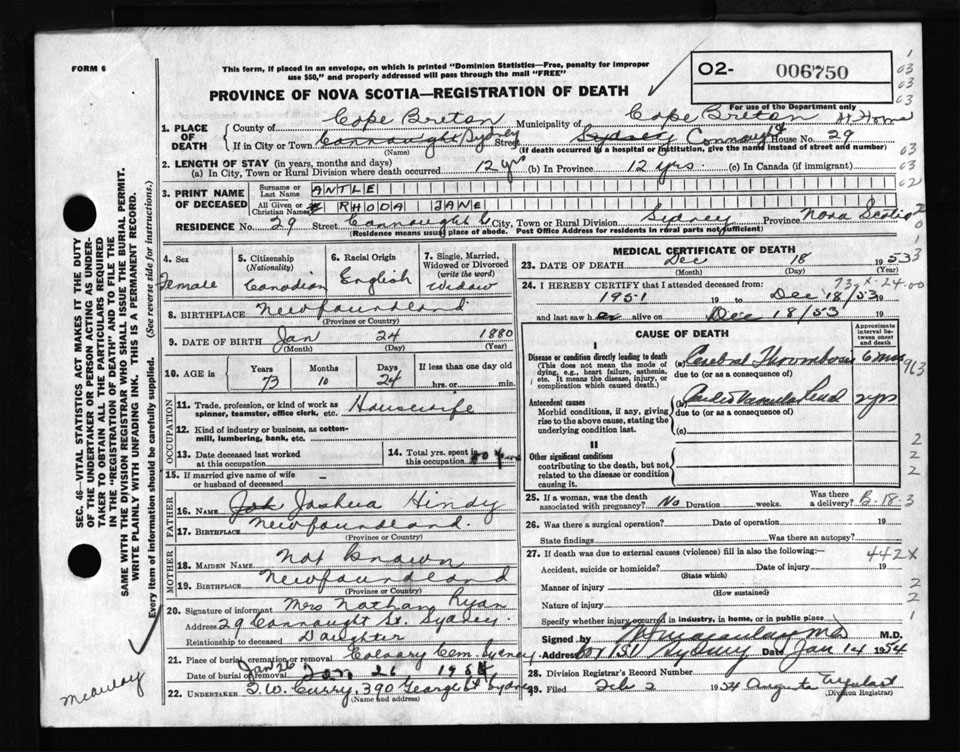 FORM 6
This form, if placed in an envelope, on which is printed "Dominion Statistics—Free, penalty for improper
use $50," and properly addressed will pass through the mail "FREE"
O2- 006750
PROVINCE OF NOVA SCOTIA—REGISTRATION OF DEATH
For use of the Department only
1. PLACE OF DEATH
County of Cape Breton Municipality of Cape Breton
If in City or Town Connaught/Sydney Street Sydney Connaught House No. 29
(Name) (If death occurred in a hospital or institution, give the name instead of street and number)
2. LENGTH OF STAY (in years, months and days)
(a) In City, Town or Rural Division where death occurred 12 yrs (b) In Province 12 yrs. (c) In Canada (if immigrant)
3. PRINT NAME OF DECEASED
Surname or Last Name ANTLE
All Given or Christian Names RHODA JANE
RESIDENCE No. 29 Street Connaught City, Town or Rural Division Sydney Province Nova Scotia
(Residence means usual place of abode. Post Office Address for residents in rural parts not sufficient)
4. Sex Female
5. Citizenship (Nationality) Canadian
6. Racial Origin English
7. Single, Married, Widowed or Divorced (write the word) Widow
8. BIRTHPLACE Newfoundland
(Province or Country)
9. DATE OF BIRTH Jan 24 1880
(Month) (Day) (Year)
10. AGE in Years Months Days If less than one day old
73 10 24 hrs. or min.
OCCUPATION
11. Trade, profession, or kind of work as spinner, teamster, office clerk, etc. Housewife
12. Kind of industry or business, as cotton-mill, lumbering, bank, etc.
13. Date deceased last worked at this occupation
14. Total yrs. spent in this occupation
15. If married give name of wife or husband of deceased
FATHER
16. NAME Joshua Hindy
17. BIRTHPLACE Newfoundland.
(Province or Country)
MOTHER
18. MAIDEN NAME Not known
19. BIRTHPLACE Newfoundland
(Province or Country)
20. Signature of informant Mrs Nathan Ryan
Address 29 Connaught St. Sydney.
Relationship to deceased Daughter
21. Place of burial, cremation or removal Calvary Cem. Sydney
Date of burial or removal Jan 26 1954
22. UNDERTAKER T.W. Curry, 390 George St Sydney
(Name and address)
MEDICAL CERTIFICATE OF DEATH
23. DATE OF DEATH Dec 18 1953
(Month) (Day) (Year)
24. I HEREBY CERTIFY that I attended deceased from:
1951 19 to Dec 18/53 19
and last saw her alive on Dec 18/53 19
CAUSE OF DEATH
Approximate interval between onset and death
I
Disease or condition directly leading to death
(This does not mean the mode of dying, e.g., heart failure, asthenia, etc. It means the disease, injury, or complication which caused death.)
(a) Cerebral Thrombosis 6 mos
due to (or as a consequence of)
Antecedent causes
Morbid conditions, if any, giving rise to the above cause, stating the underlying condition last.
(b) Cardio Vascular Renal 2 yrs
due to (or as a consequence of)
(c)
II
Other significant conditions
contributing to the death, but not related to the disease or condition causing it.
25. If a woman, was the death associated with pregnancy? No Duration weeks. Was there a delivery? B-18-3
26. Was there a surgical operation? Date of operation 19
State findings Was there an autopsy?
27. If death was due to external causes (violence) fill in also the following:— 442X
Accident, suicide or homicide? Date of injury 19
(State which)
Manner of injury
(How sustained)
Nature of injury
Specify whether injury occurred in industry, in home, or in public place
Signed by M.D.
Address Box 151 Sydney Date Jan 14 1954
28. Division Registrar's Record Number
29. Filed Feb 2 1954
(Division Registrar)
SEC. 46—VITAL STATISTICS ACT MAKES IT THE DUTY
OF THE UNDERTAKER OR PERSON ACTING AS UNDER-
TAKER TO OBTAIN ALL THE PARTICULARS REQUIRED
IN THE "REGISTRATION OF DEATH" AND TO FILE THE
SAME WITH THE DIVISION REGISTRAR WHO SHALL ISSUE THE BURIAL PERMIT.
WRITE PLAINLY WITH UNFADING INK. THIS IS A PERMANENT RECORD.
Every item of information should be carefully supplied. (See reverse side for instructions.)